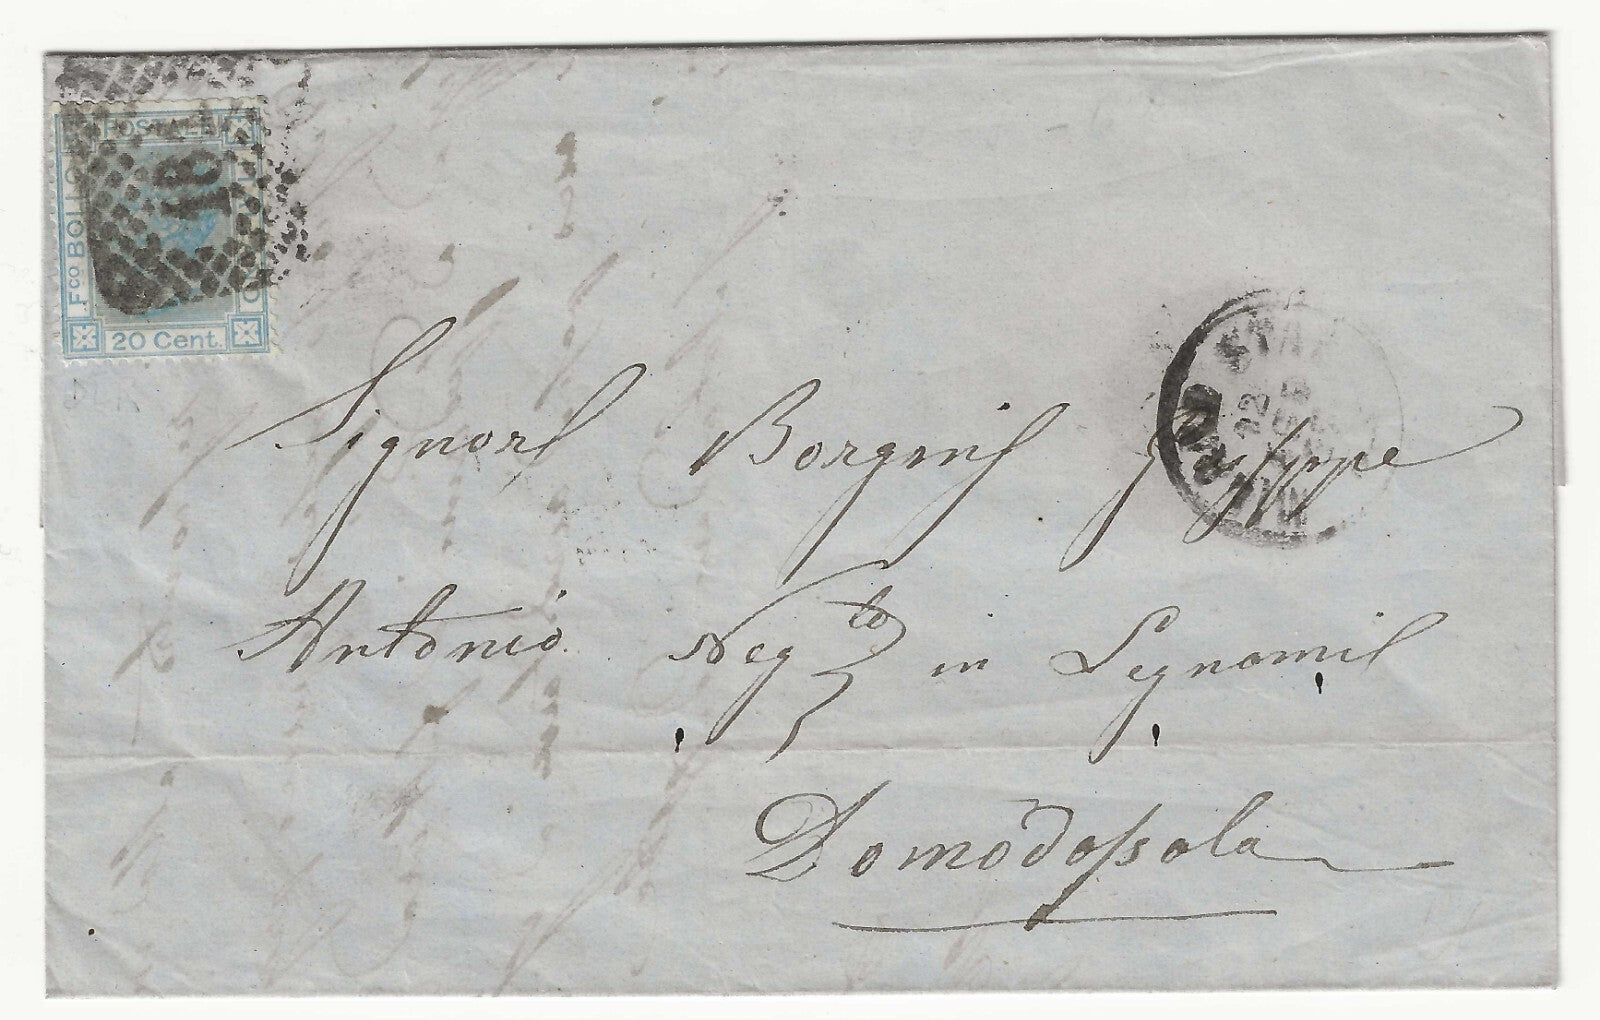 POSTALE
Fco BOLLO
20 Cent.
18
22
Signorl Borgnis Giuseppe
Antonio Negto in Legnamil
Domodossola